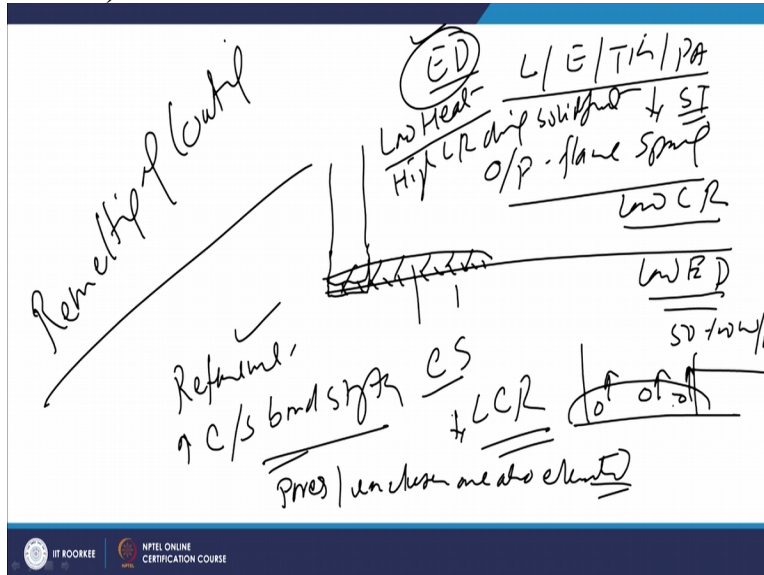 Remelting of Coating
ED L/E/TIG/PA
Low Heat ↓ SI
High CR during solidification
O/P - flame Spray
Low CR
Low ED
Refinement
CS
↑ C/S bond strength
↓ LCR
Pores / inclusion are also eliminated
IIT ROORKEE
NPTEL ONLINE
CERTIFICATION COURSE
NPTEL